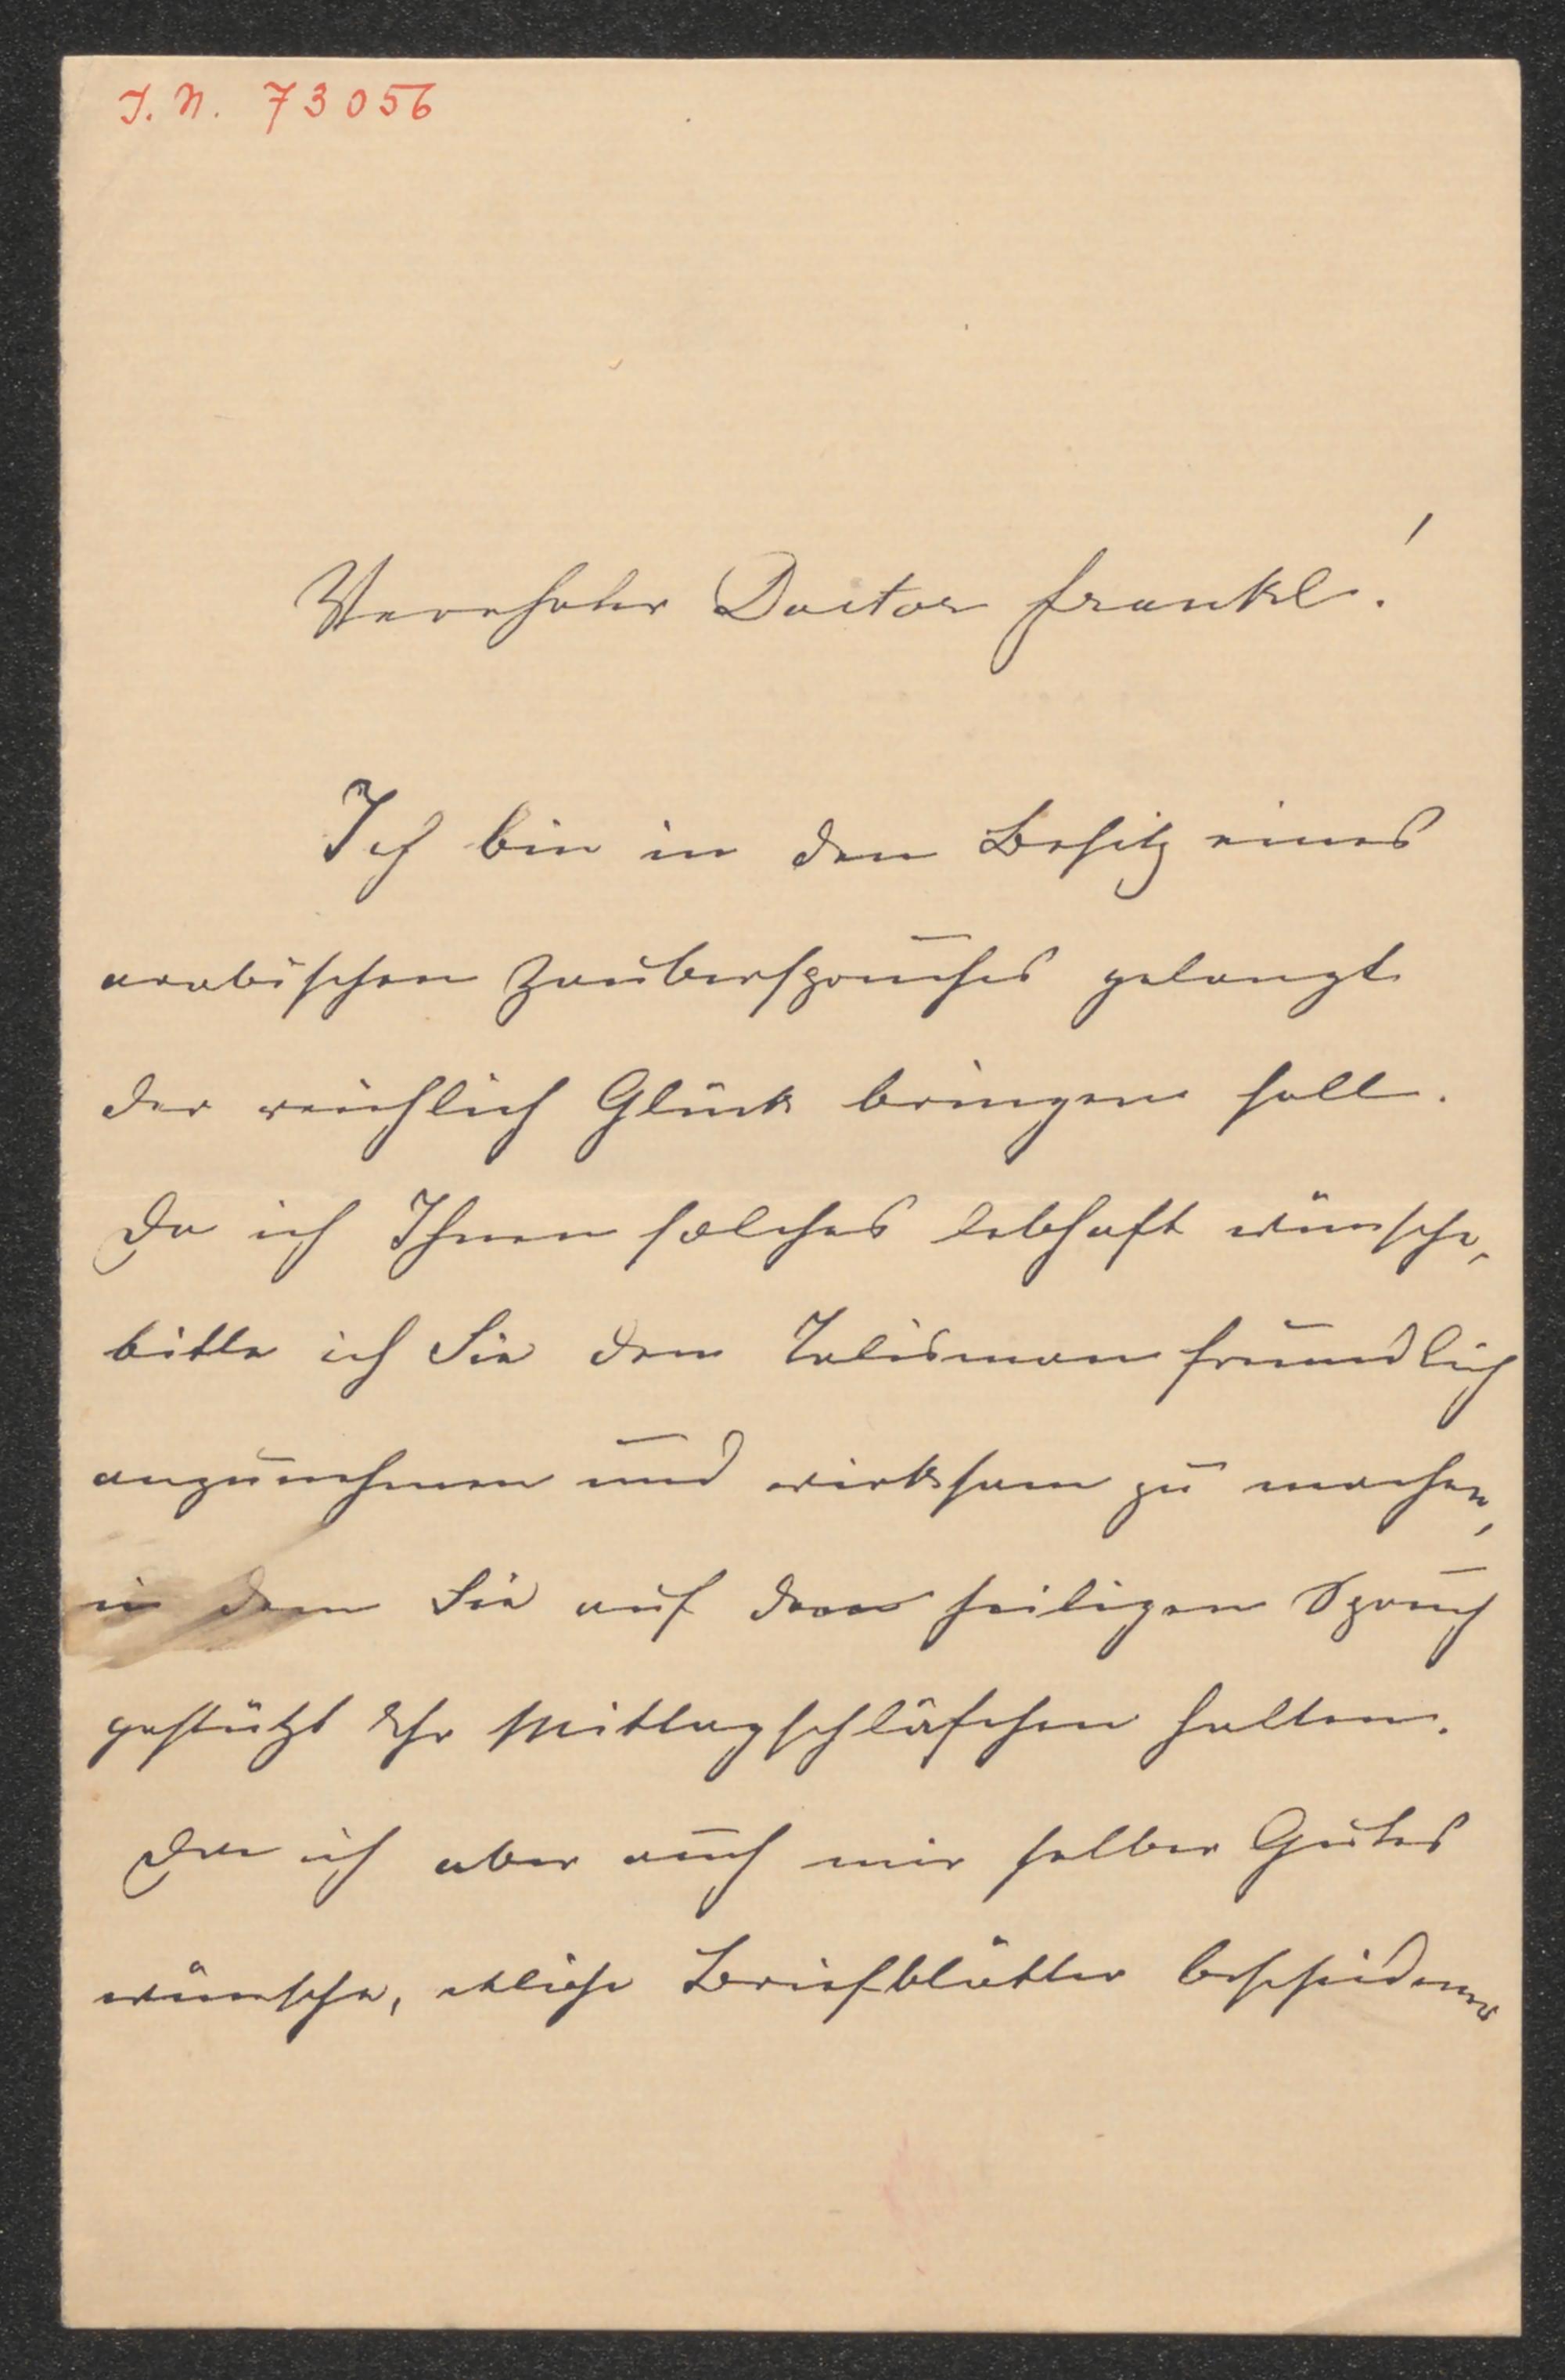 J. N. 73056
Verehrter Doctor Frankl!
Ich bin in den Besitz eines
arabischen Zauberspruches gelangt
der reichlich Glück bringen soll.
Da ich Ihnen solches lebhaft wünsche,
bitte ich Sie den Talisman freundlich
anzunehmen und wirksam zu machen,
in dem Sie auf dem heiligen Spruch
gestützt Ihr Mittagschläfchen halten.
Da ich aber auch mir selber Gutes
wünsche, etliche Briefblätter bescheidener